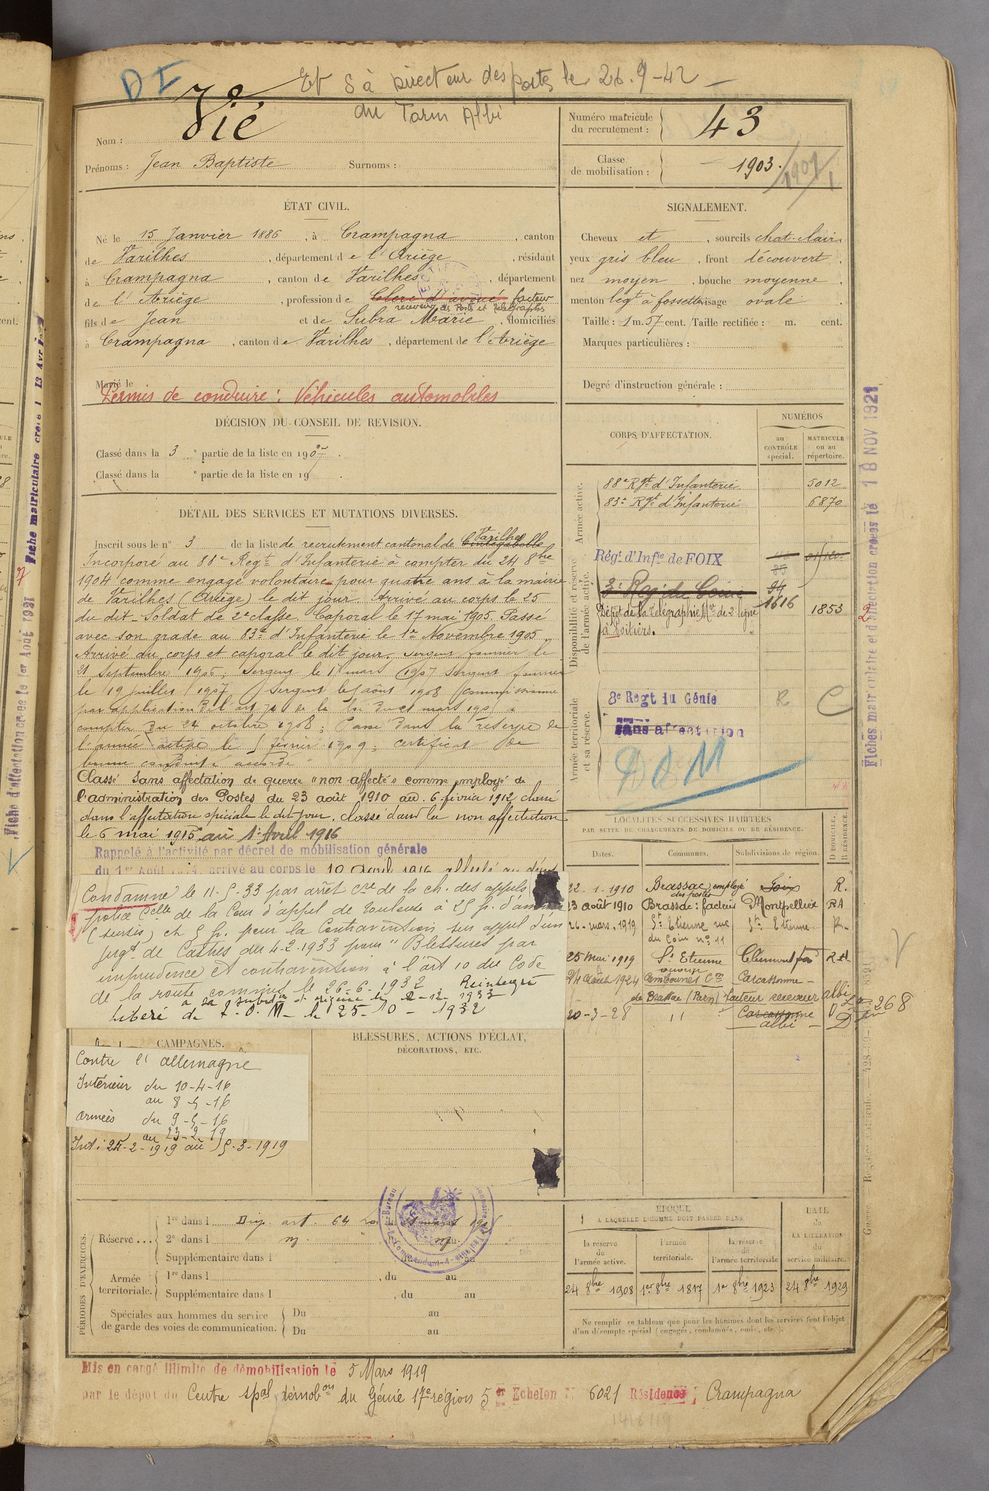 Et S à Directeur des postes le 26.9-42
du Tarn Albi
Nom : Vié
Prénoms : Jean Baptiste Surnoms :
Numéro matricule du recrutement : 43
Classe de mobilisation : 1903.
ÉTAT CIVIL.
Né le 15 Janvier 1886, à Crampagna, canton
de Varilhes, département de l'Ariège, résidant
à Crampagna, canton de Varilhes, département
de l'Ariège, profession de Clerc d'avoué facteur
receveur des Postes et Télégraphes
fils de Jean et de Subra Marie, domiciliés
à Crampagna, canton de Varilhes, département de l'Ariège
Marié le
Permis de conduire : Véhicules automobiles
SIGNALEMENT.
Cheveux et, sourcils chat. clair
yeux gris bleu, front découvert
nez moyen, bouche moyenne
menton légt à fossette visage ovale
Taille : 1 m. 57 cent. Taille rectifiée : m. cent.
Marques particulières :
Degré d'instruction générale :
DÉCISION DU CONSEIL DE RÉVISION.
Classé dans la 3e partie de la liste en 190
Classé dans la e partie de la liste en 19
DÉTAIL DES SERVICES ET MUTATIONS DIVERSES.
Inscrit sous le n° 3 de la liste de recrutement cantonal de Varilhes
Incorporé au 88e Régt d'Infanterie à compter du 24 8bre
1904 comme engagé volontaire pour quatre ans à la mairie
de Varilhes (Ariège) le dit jour. Arrivé au corps le 25
du dit. Soldat de 2e classe. Caporal le 17 mai 1905. Passé
avec son grade au 83e d'Infanterie le 1er Novembre 1905
Arrivé du corps et caporal le dit jour. Sergent fourrier le
21 Septembre 1905, Sergent le 1er mars 1907 Sergent fourrier
le 19 juillet 1907
compter du 24 octobre 1908 ; Passé dans la réserve de
l'armée active le
certificat de
bonne conduite accordé
Classé sans affectation de guerre "non affecté" comme employé de
l'administration des Postes du 23 août 1910 au 6 février 1912 classé
dans l'affectation spéciale le dit jour, classé dans la non affectation
le 6 mai 1915 au 1er Avril 1916
Rappelé à l'activité par décret de mobilisation générale
arrivé au corps le 10 Avril 1916
Condamné le 11-5-33 par arrêt Cre de la ch. des appels
police Celle de la Cour d'appel de Toulouse à 25 f. d'am
(sursis) et 5 f. pour la contravention sur appel d'un
jugt de Castres du 4-2-1933 pour "Blessures par
imprudence et contravention à l'art 10 du Code
de la route commis le 26-6-1932 Réintégré
libéré de l'O. M - le 25-10-1932
CORPS D'AFFECTATION.
NUMÉROS
AU CONTRÔLE spécial.
MATRICULE ou au répertoire.
Armée active.
88e Rgt d'Infanterie 5012
83e Rgt d'Infanterie 6870
Disponibilité et réserve de l'armée active.
Régt d'Infie de FOIX
3e Reg du Génie 94
Dépot de la Télégraphie Mre de 2e ligne 1616 1853
à Poitiers.
Armée territoriale et sa réserve.
8e Régt du Génie R C
sans affectation
DOM
LOCALITÉS SUCCESSIVES HABITÉES
PAR SUITE DE CHANGEMENTS DE DOMICILE OU DE RÉSIDENCE.
Dates. Communes. Subdivisions de région. D DOMICILES. R RÉSIDENCE.
22-1-1910 Brassac employé des postes Foix R.
23 août 1910 Brassac : facteur Montpellier RA
26-mars.1919 St Etienne rue du Coin n° 11 St Etienne R-
25 Mai 1919 St Etienne Clermont Fd
Août 1924 Carcassonne
de Brassac (Tarn) facteur receveur Albi
20-3-28 " Carcassonne D
albi
268
CAMPAGNES.
Contre l'allemagne
Intérieur du 10-4-16
au 8-5-16
Armées du 9-5-16
au 23-2-19
Int: 24-2-1919 au 5-3-1919
BLESSURES, ACTIONS D'ÉCLAT,
DÉCORATIONS, ETC.
PÉRIODES D'EXERCICES.
Réserve....
1re dans l
2e dans l
Supplémentaire dans l
Armée territoriale.
1re dans l , du au
Supplémentaire dans l , du au
Spéciales aux hommes du service de garde des voies de communication.
Du au
Du au
ÉPOQUE
À LAQUELLE L'HOMME DOIT PASSER DANS
la réserve de l'armée active.
l'armée territoriale.
la réserve de l'armée territoriale
DATE de LA LIBÉRATION du service militaire.
24 8bre 1908 1er 8bre 1817 1er 8bre 1923 24 8bre 1929
Ne remplir ce tableau que pour les hommes dont les services font l'objet
d'un décompte spécial (engagés, condamnés, omis, etc.).
Mis en congé illimité de démobilisation le 5 Mars 1919
par le dépôt du Centre spal démobon du Génie 17e région 5e Echelon N° 6021 Résidence : Crampagna
Fiche matriculaire et d'affectation créées le 18 NOV 1921
Fiche d'affectation créée le 1er Août 1921